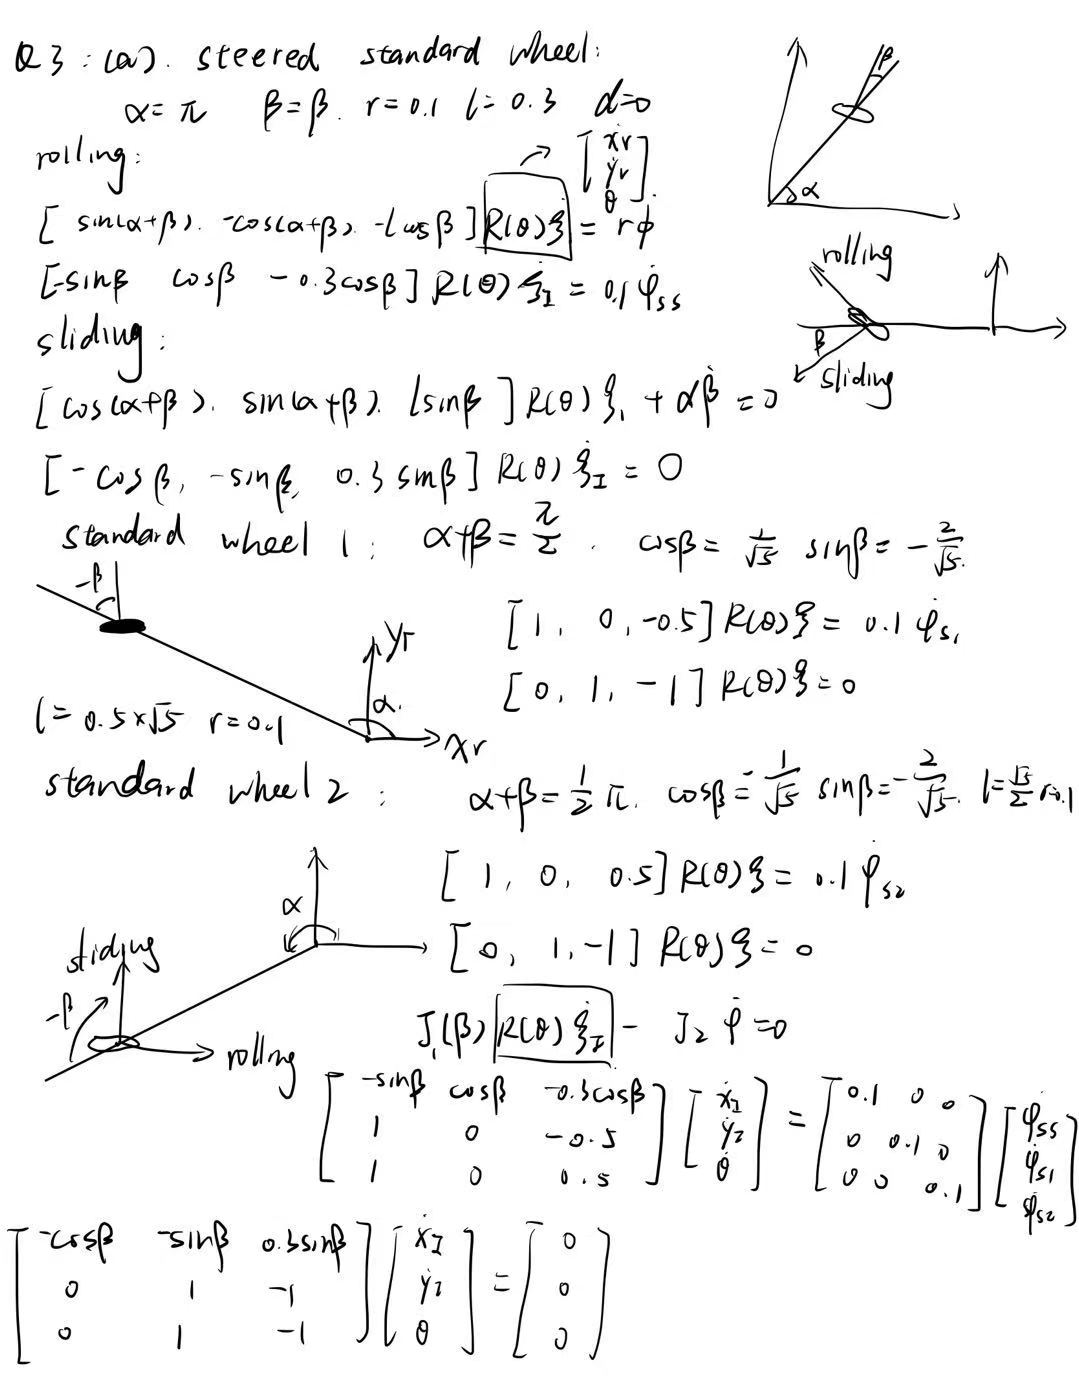 Q3 : (a). steered standard wheel:
α=π β=β. r=0.1 l=0.3 d=0
rolling:
[ẋr ẏr θ̇]
[ sin(α+β). -cos(α+β). -lcosβ ] R(θ)ξ̇ = rφ̇
[-sinβ cosβ -0.3cosβ] R(θ) ξ̇I = 0.1 φ̇ss
sliding:
[cos(α+β). sin(α+β). lsinβ ] R(θ) ξ̇I + dβ̇ = 0
[-cosβ, -sinβ, 0.3 sinβ] R(θ) ξ̇I = 0
β
α
rolling
β
sliding
standard wheel 1: α+β = π/2. cosβ = 1/√5 sinβ = -2/√5.
-β
yr
α.
xr
[1, 0, -0.5] R(θ)ξ̇ = 0.1 φ̇s1
[0, 1, -1] R(θ)ξ̇ = 0
l= 0.5×√5 r=0.1
standard wheel 2 : α+β = 1/2 π. cosβ = 1/√5 sinβ = -2/√5. l=√5/2 r=0.1
α
sliding
-β
rolling
[1, 0, 0.5] R(θ)ξ̇ = 0.1 φ̇s2
[0, 1, -1] R(θ)ξ̇ = 0
J1(β) R(θ) ξ̇I - J2 φ̇ = 0
[-sinβ cosβ -0.3cosβ
1 0 -0.5
1 0 0.5] [ẋI ẏI θ̇] = [0.1 0 0
0 0.1 0
0 0 0.1] [φ̇ss φ̇s1 φ̇s2]
[-cosβ -sinβ 0.3sinβ
0 1 -1
0 1 -1] [ẋI ẏI θ̇] = [0 0 0]